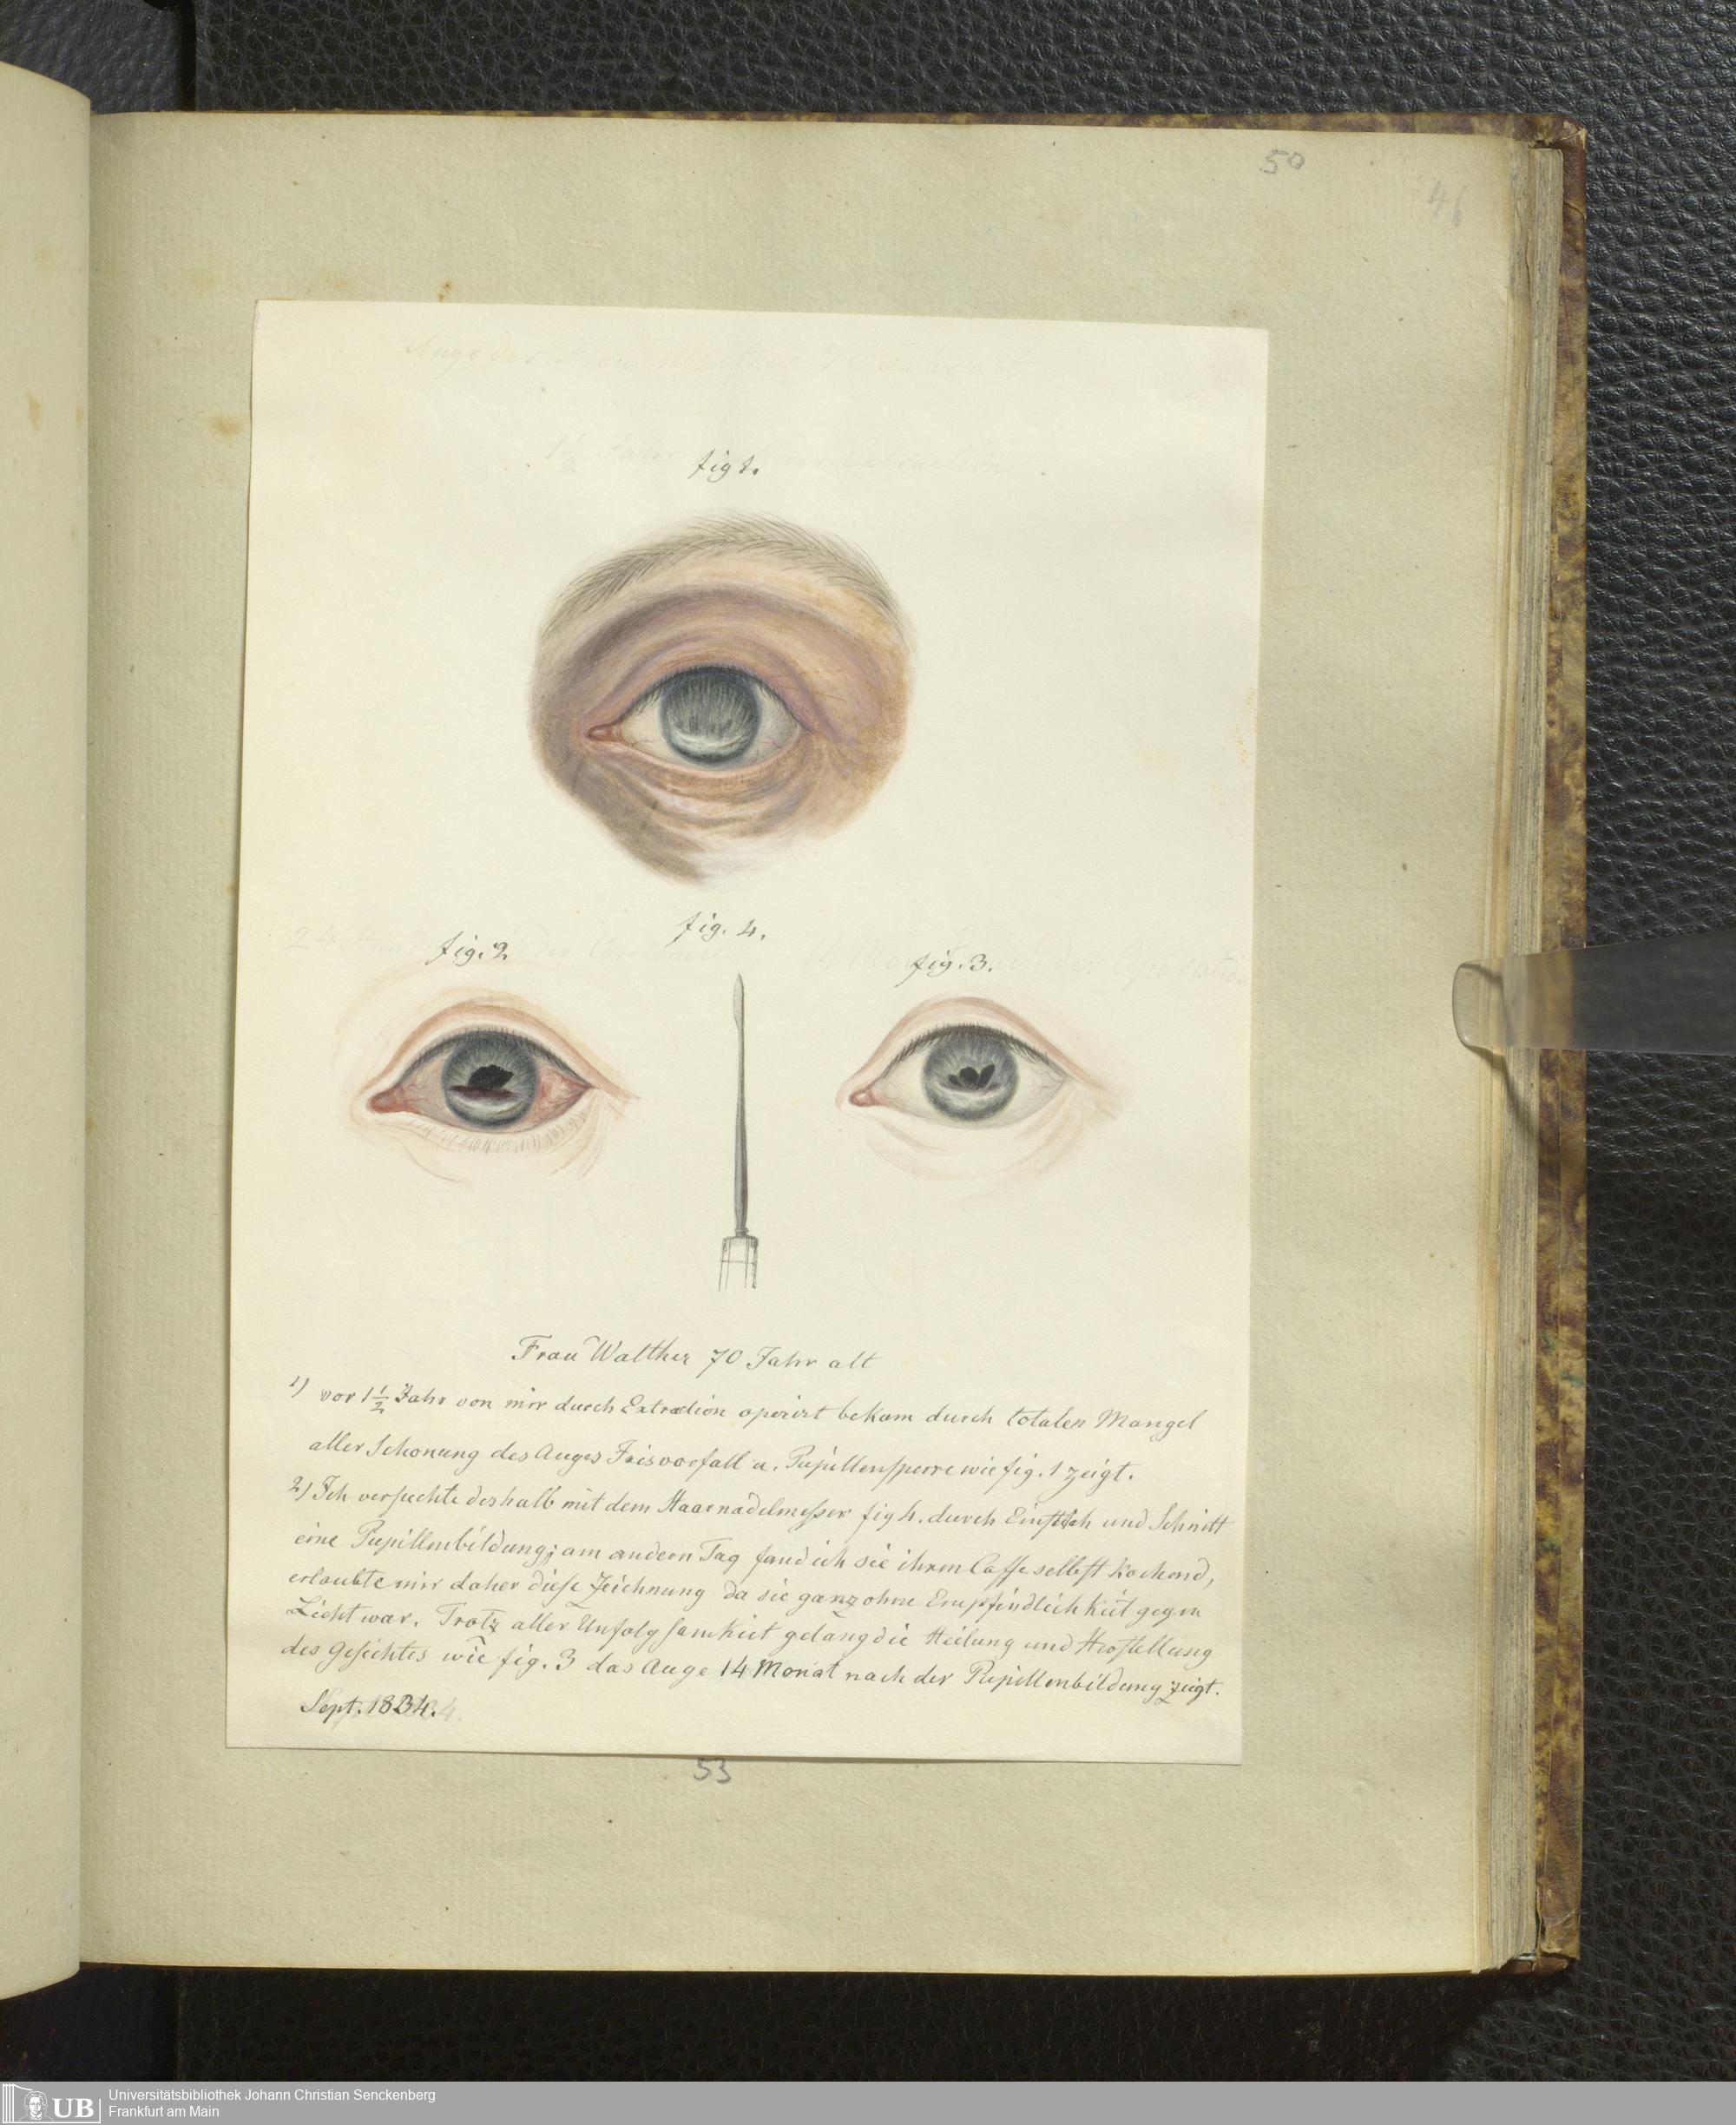 50
46
Auge der Frau Walther 70 Jahr alt
1½ Jahr nach der Extraction
fig 1.
fig. 4.
24 der
nach der Operation
fig. 2
fig. 3.
Frau Walther 70 Jahr alt
1) vor 1½ Jahr von mir durch Extraction operirt bekam durch totalen Mangel
aller Schonung des Auges Irisvorfall u. Pupillensperre wie fig. 1 zeigt.
2) Ich versuchte deshalb mit dem Haarnadelmesser fig 4. durch Einstich und Schnitt
eine Pupillenbildung; am andern Tag fand ich sie ihren Caffe selbst kochend,
erlaubte mir daher diese Zeichnung da sie ganz ohne Empfindlichkeit gegen
Licht war. Trotz aller Unfolgsamkeit gelang die Heilung und Herstellung
des Gesichtes wie fig. 3 das Auge 14 Monat nach der Pupillenbildung zeigt.
Sept. 1834.
53
UB
Universitätsbibliothek Johann Christian Senckenberg
Frankfurt am Main